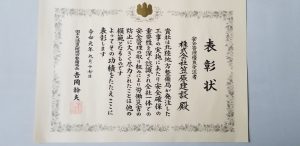 表彰状
安全管理優良受注者
株式会社笠原建設 殿
貴社は北陸地方整備局が発注した
工事の実施にあたり安全確保の
重要性を深く認識され会社一体での
安全管理の取り組みにより労働災害の
防止に大きく尽力されたことは他の
模範となるものです
よってその功績をたたえここに
表彰します
令和元年
国土交通省北陸地方整備局長 吉岡幹夫